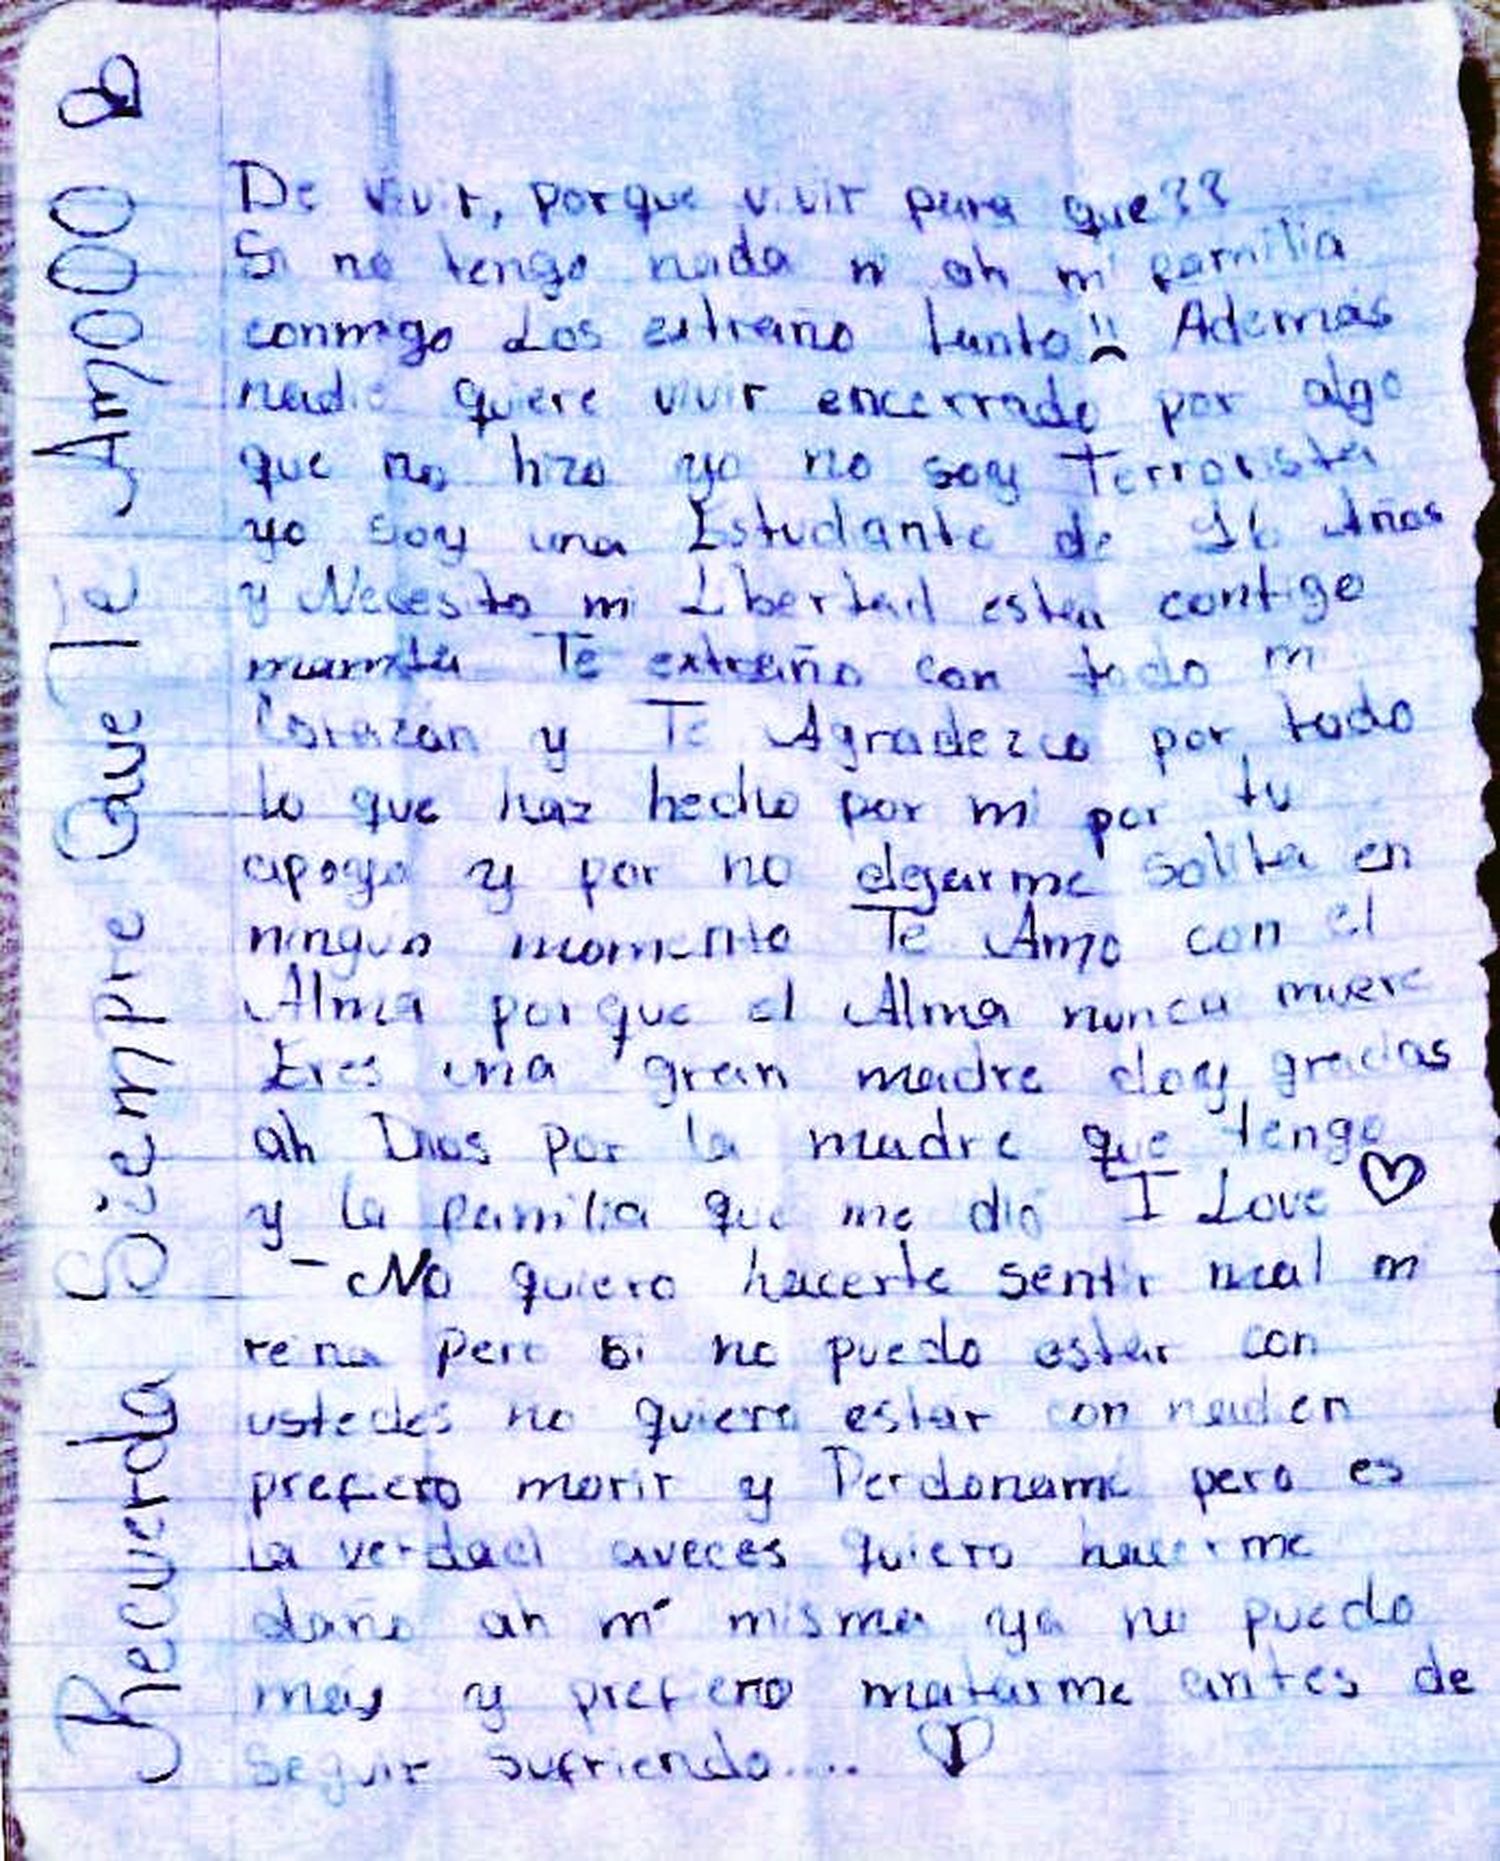 De vivir, porque vivir para que??
Si no tengo nada ni ah mi familia
conmigo Los extraño tanto!! Además
nadie quiere vivir encerrado por algo
que no hizo yo no soy Terrorista
yo soy una Estudiante de 16 Años
y Necesito mi Libertad estar contigo
mamita Te extraño con todo mi
Corazón y Te Agradezco por todo
lo que haz hecho por mi por tu
apoyo y por no dejarme solita en
ningun momento Te Amo con el
Alma porque el Alma nunca muere
Eres una gran madre doy gracias
ah Dios por la madre que tengo
y la familia que me dio I Love ♡
- No quiero hacerte sentir mal mi
reina pero si no puedo estar con
ustedes no quiero estar con nadien
prefiero morir y Perdoname pero es
la verdad aveces quiero hacerme
daño ah mi misma ya no puedo
más y prefiero matarme antes de
seguir sufriendo.... ♡
Recuerda Siempre Que Te Amooo